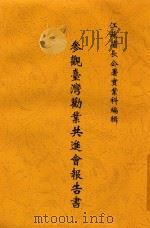 江蘇省長公署實業科編輯
參觀臺灣勸業共進會報告書